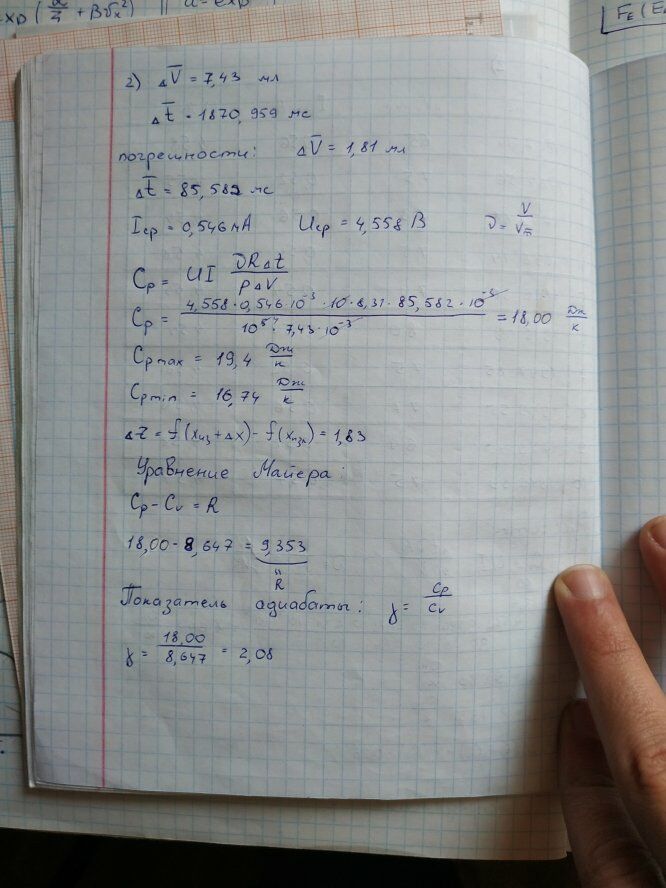 xp(α/4 + βV̄x²) || α - exp
Fε(Eε
2) ΔV̄ = 7,43 мл
Δt̄ = 1870,959 мс
погрешности: ΔV̄ = 1,81 мл
Δt̄ = 85,582 мс
Iср = 0,546 мА Uср = 4,558 В ν = V/Vm
Cp = UI νRΔt/pΔV
Cp = 4,558 · 0,546 · 10⁻³ · 10 · 8,31 · 85,582 · 10⁻³/10⁵ · 7,43 · 10⁻³ = 18,00 Дж/К
Cp max = 19,4 Дж/К
Cp min = 16,74 Дж/К
Δz = f(xиз + Δx) - f(xизм) = 1,83
Уравнение Майера:
Cp - Cv = R
18,00 - 8,647 = 9,353
"
R
Показатель адиабаты: γ = Cp/Cv
γ = 18,00/8,647 = 2,08